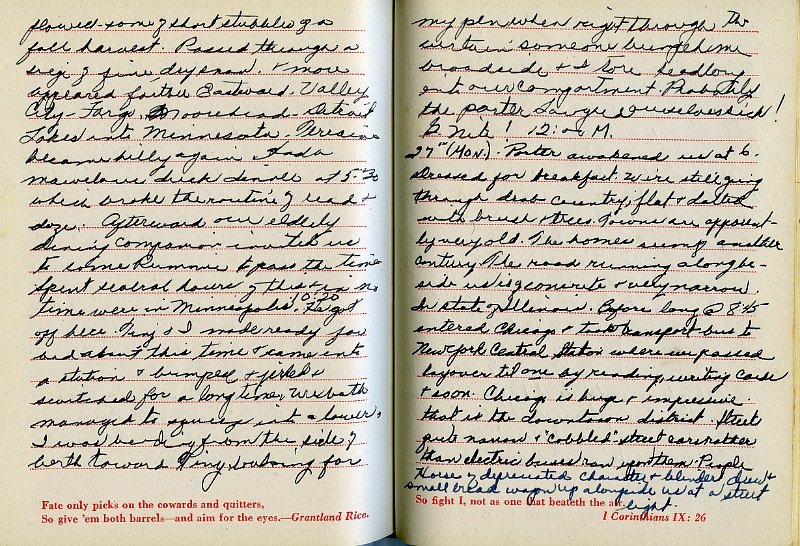 plowed - some of short stubble of a
fall harvest. Passed through a
of fine dry snow. & more
appeared farther Eastward. Valley
City - Fargo, Moorehead - Detroit
Lakes into Minnesota. Terrain
became hilly again. Had a
marvelous duck dinner at 5:30
which broke the routine of read &
doze. Afterward our elderly
dining companion invited us
to some Rummie to pass the time
Spent several hours of this & in no
time were in Minneapolis. 10:20 He got
off here. Tiny & I made ready for
bed about this time & came into
a station & bumped & jerked &
switched for a long time. We both
managed to squeeze into a lower.
I was bending from the side of
berth toward Tiny looking for
Fate only picks on the cowards and quitters,
So give 'em both barrels—and aim for the eyes.—Grantland Rice.
my pen when right through the
curtain someone bumped me
broadside & I tore headlong
into our compartment. Probably
the porter
G. Nite! 12: M.
27th (MON). Porter awakened us at 6.
Dressed for breakfast. We're still going
through drab country, flat & dotted
with brush & trees. Towns are apparent-
ly very old. The homes among another
century. The road running alongbe-
side us is of concrete & very narrow.
In state of Illinois. Before long @ 8:45
entered Chicago & took transport bus to
New York Central Station where we passed
layover til one by reading, writing cards
& soon. Chicago is huge & impressive.
that is the downtown district. Street
quite narrow & "cobbled" street cars rather
than electric buses run upon them. People
Horse of depreciated character & blinder drew
small bread wagon up alongside us at a street
light.
So fight I, not as one that beateth the air.
I Corinthians IX: 26